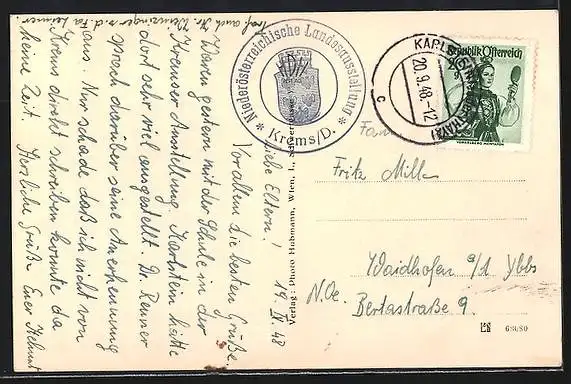 Liebe Eltern! 19. IX. 48
Vor allem die besten Grüße.
Waren gestern mit der Schule in der
Kremser Ausstellung. Karlstein hatte
dort sehr viel ausgestellt. Dr. Renner
sprach darüber seine Anerkennung
aus. Nur schade daß ich nicht von
Krems direkt schreiben konnte da
keine Zeit. Herzliche Grüße Euer Helmut
traf auch Hr.
Niederösterreichische Landesausstellung
Krems/D.
KARLSTEIN
20.9.48-12
c
Republik Österreich
VORARLBERG MONTAFON
Fam.
Fritz Mill
Waidhofen a/d Ybbs
N.Oe. Bertastraße 9.
Verlag: Photo Hubmann, Wien, I.,
68080